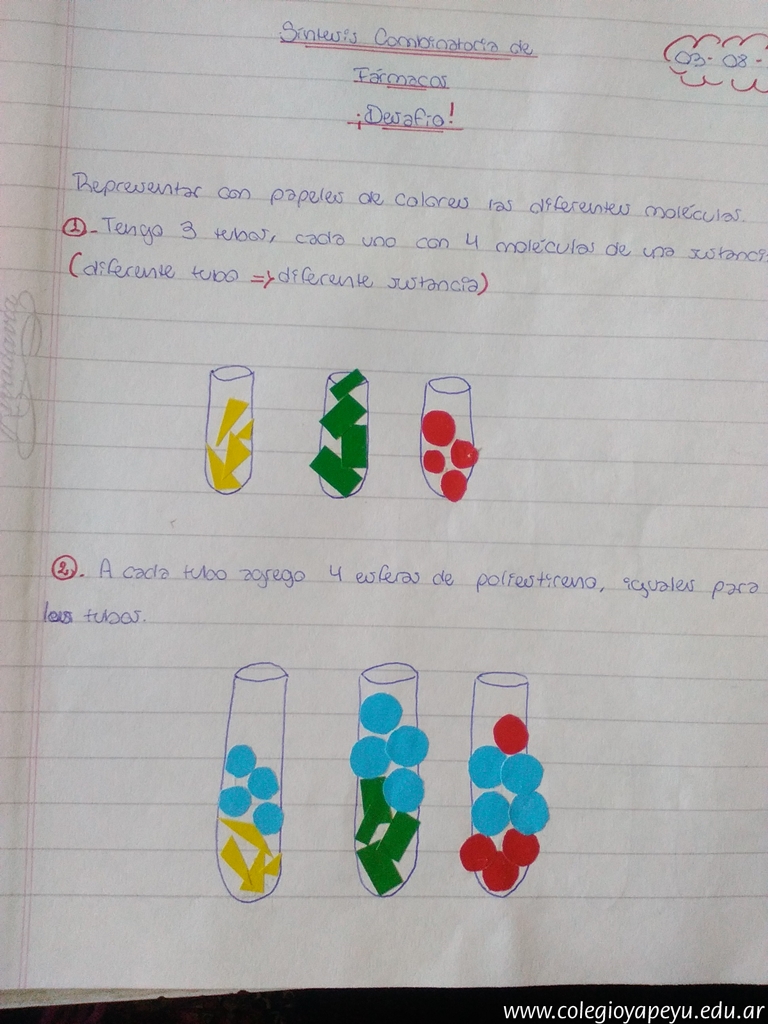 Síntesis Combinatoria de
Fármacos
¡Desafío!
03-08-
Representar con papeles de colores las diferentes moléculas.
1.- Tengo 3 tubos, cada uno con 4 moléculas de una sustanci
(diferente tubo => diferente sustancia)
2.- A cada tubo agrego 4 esferas de poliestireno, iguales para
los tubos.
www.colegioyapeyu.edu.ar